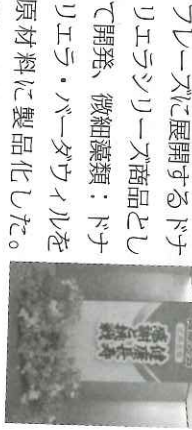 フレーズに展開するドナ
リエラシリーズ商品とし
て開発、微細藻類：ドナ
リエラ・バーダウィルを
原材料に製品化した。
健康長寿
感謝と挑戦